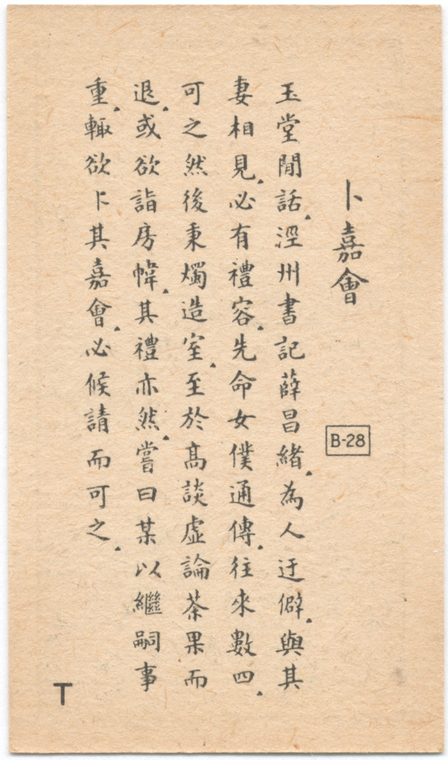 卜嘉會
B-28
玉堂閒話.涇州書記薛昌緒.為人迂僻.與其
妻相見.必有禮容.先命女僕通傳.往來數四.
可之然後秉燭造室.至於高談虛論茶果而
退.或欲詣房幃.其禮亦然.嘗曰某以繼嗣事
重.輙欲卜其嘉會.必候請而可之.
T